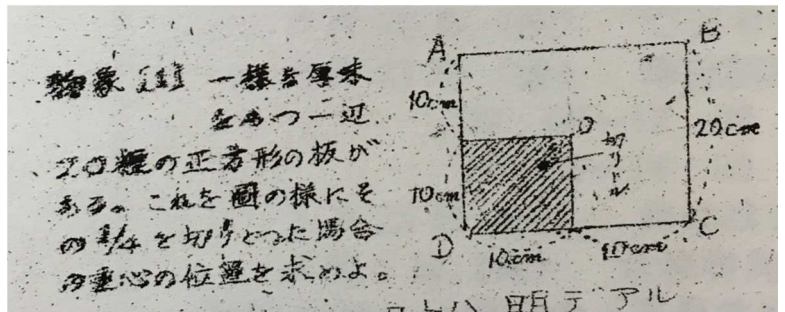 物象〔1〕 一様な厚味
をもつ一辺
20糎の正方形の板が
ある。これを圖の様にそ
の1/4を切りとつた場合
の重心の位置を求めよ。
A
B
10cm
20cm
O
切リトル
10cm
D
C
10cm
10cm
明デアル